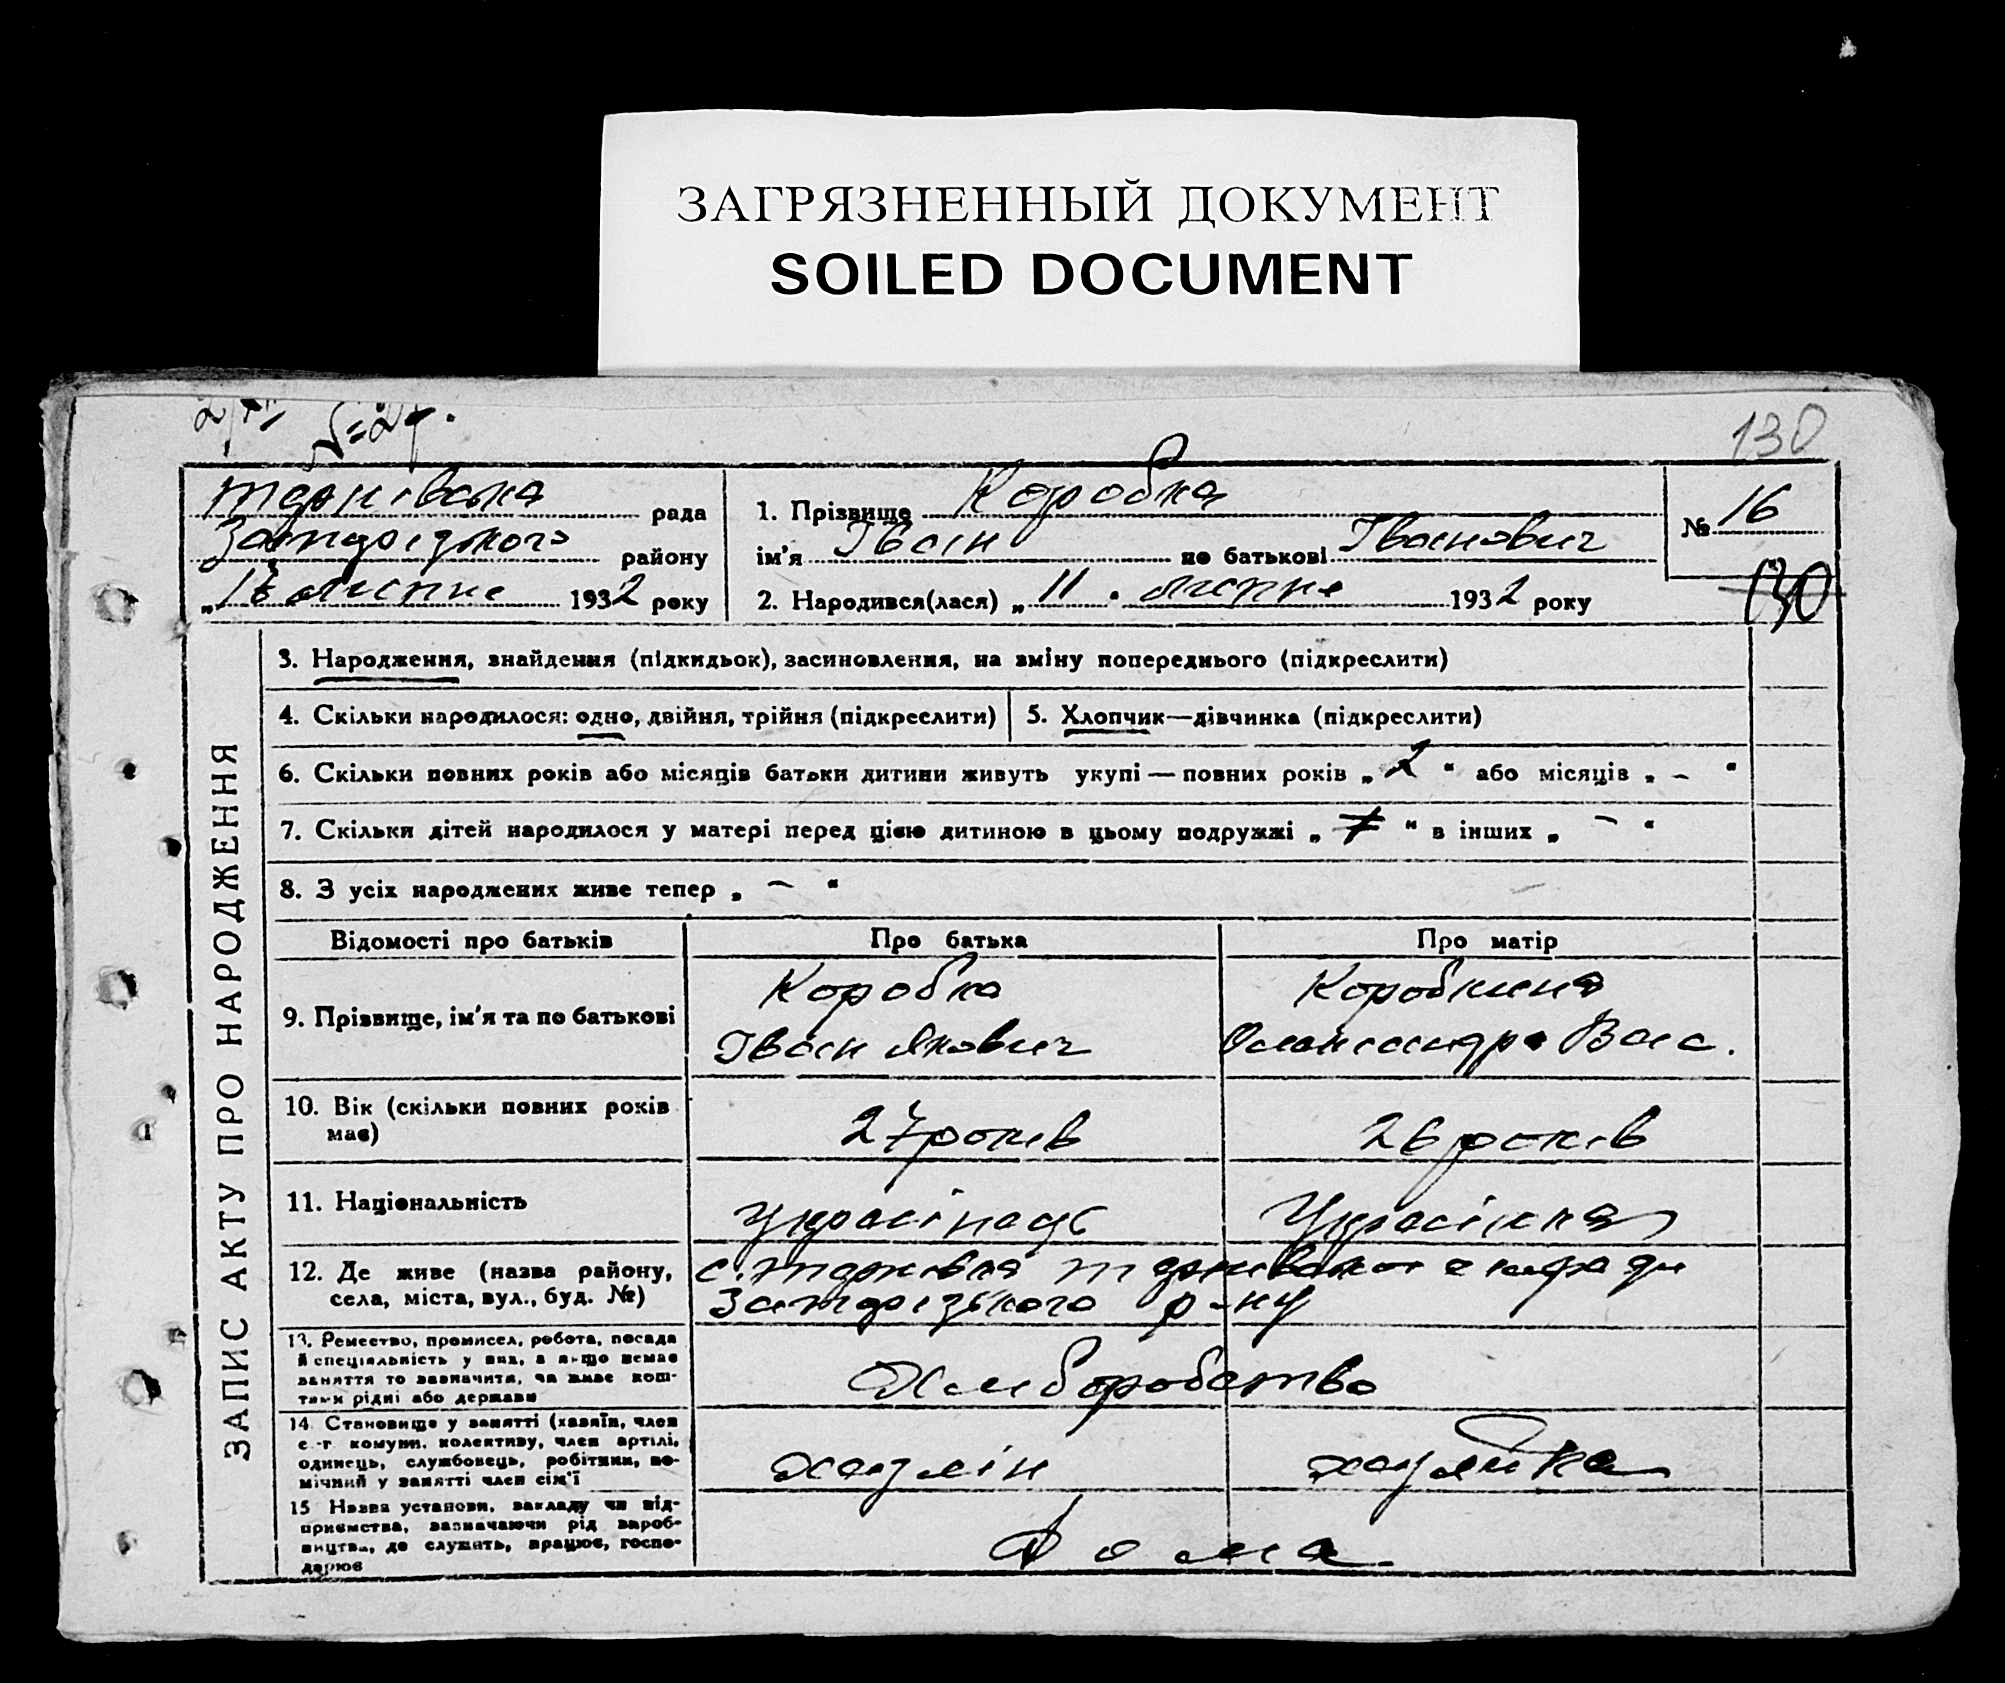 ЗАГРЯЗНЕННЫЙ ДОКУМЕНТ
SOILED DOCUMENT
130
Тернівська рада
Затурізького району
1932 року
1. Прізвище Коробка
ім'я Іван по батькові Іванович
2. Народився(лася) „ 11 . липня 1932 року
№ 16
130
ЗАПИС АКТУ ПРО НАРОДЖЕННЯ
3. Народження, знайдення (підкидьок), засиновлення, на зміну попереднього (підкреслити)
4. Скільки народилося: одно, двійня, трійня (підкреслити)
5. Хлопчик—дівчинка (підкреслити)
6. Скільки повних років або місяців батьки дитини живуть укупі — повних років „ 2 “ або місяців „ – “
7. Скільки дітей народилося у матері перед цією дитиною в цьому подружжі „ “ в інших „ – “
8. З усіх народжених живе тепер „ – “
Відомості про батьків
Про батька
Про матір
9. Прізвище, ім'я та по батькові
Коробка
Іван Якович
Коробкина
Олександра Вас.
10. Вік (скільки повних років
має)
27 років
26 років
11. Національність
Українець
Українка
12. Де живе (назва району,
села, міста, вул., буд. №)
с. Тернівка Тернівської ради
р-ну
13. Ремество, промисел, робота, посада
й спеціяльність у них, а якщо немає
заняття то зазначити, чи живе кош-
тами рідні або держави
Хліборобство
14. Становище у занятті (хазяїн, член
с.-г комуни, колективу, член артілі,
одинець, службовець, робітник, по-
мічний у занятті член сім'ї
хазяїн
хазяйка
15 Назва установи, закладу чи під-
приємства, зазначаючи рід вироб-
ництва, де служить, працює, госпо-
дарює
Дома